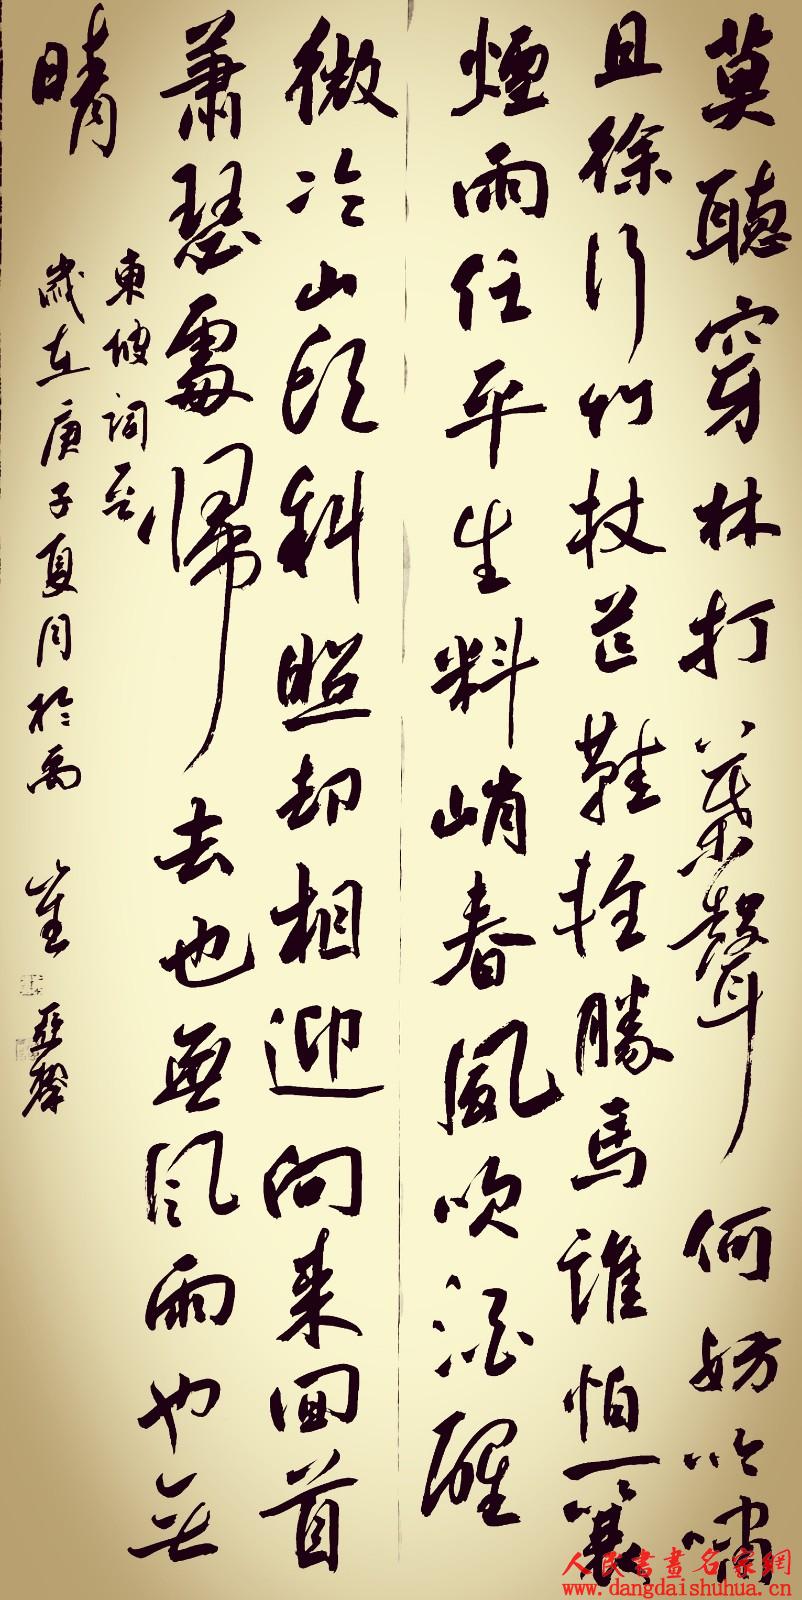 莫聽穿林打葉聲何妨吟嘯
且徐行竹杖芒鞋輕勝馬誰怕一蓑
煙雨任平生料峭春風吹酒醒
微冷山頭斜照却相迎向来回首
蕭瑟處歸去也無風雨也无
晴
東坡詞
歲在庚子夏月於禹 崔亞
人民書畫名家網
www.dangdaishuhua.cn